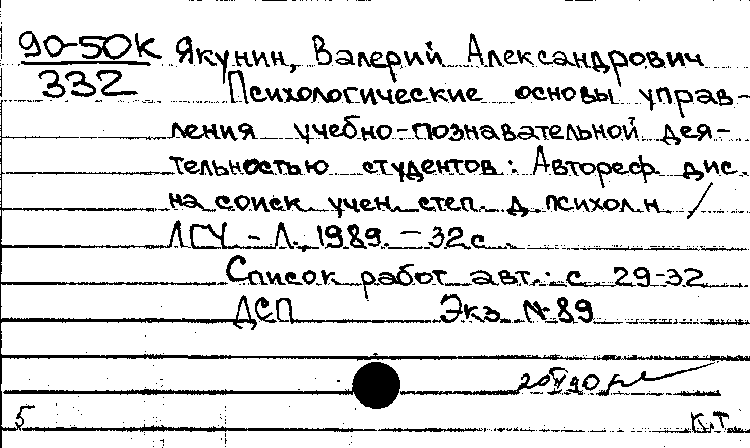 90-50К Якунин, Валерий Александрович
332 Психологические основы управ-
ления учебно-познавательной дея-
тельностью студентов: Автореф. дис.
на соиск. учен. степ. д. психол. н /
ЛГУ. - Л., 1989. - 32 с.
Список работ авт.: с. 29-32
ДСП Экз. № 89
5 К.Т.